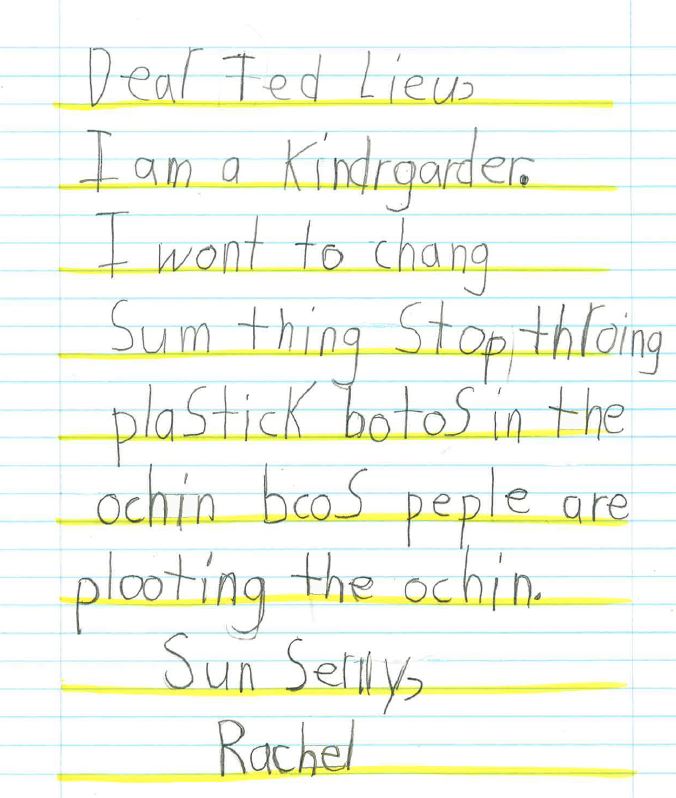 Dear Ted Lieu,
I am a Kindrgarder.
I wont to chang
Sum thing Stop throing
plaStick botoS in the
ochin bcoS peple are
plooting the ochin.
Sun Serlly,
Rachel